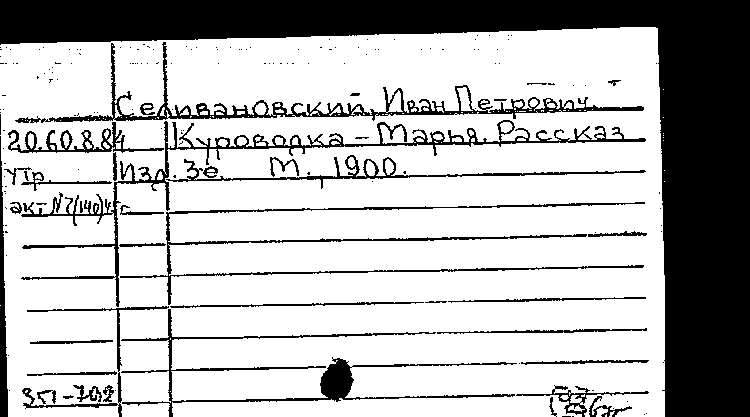 Селивановский, Иван Петрович.
20.60.8.84 Куроводка – Марья. Рассказ
утр. Изд. 3е. М., 1900.
акт №7(140)45г
35п-792